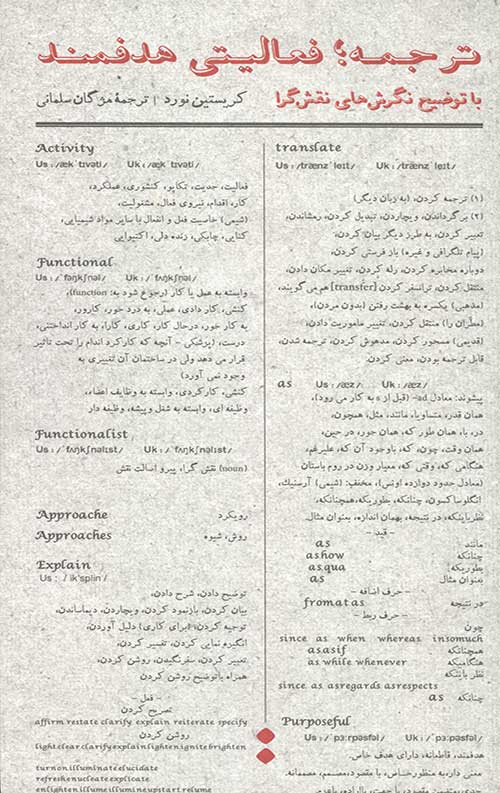 ترجمه؛ فعالیتی هدفمند
با توضیح نگرش‌های نقش‌گرا
کریستین نورد | ترجمهٔ مژگان سلمانی
Activity
Us : /æk ˈtɪvəti/ Uk : /æk ˈtɪvəti/
فعالیت، جدیت، تکاپو، کنشوری، عملکرد،
کار، اقدام، نیروی فعال، مشغولیت،
(شیمی) خاصیت فعل و انفعال با سایر مواد شیمیایی،
کنایی، چابکی، زنده دلی، اکتیوایی
Functional
Us : /ˈfəŋkʃnəl/ Uk : /ˈfʌŋkʃnəl/
وابسته به عمل یا کار (رجوع شود به: function)،
کنشی، کار دادی، عملی، به درد خور، کارور،
به کار خور، درحال کار، کاری، کارا، به کار انداختنی،
درست، (پزشکی - آنچه که کارکرد اندام را تحت تاثیر
قرار می دهد ولی در ساختمان آن تغییری به
وجود نمی آورد)
کنشی، کارکردی، وابسته به وظایف اعضاء،
وظیفه ای، وابسته به شغل و پیشه، وظیفه دار
Functionalist
Us : /ˈfʌŋkʃnəlɪst/ Uk : /ˈfʌŋkʃnəlɪst/
(noun) نقش گرا، پیرو اصالت نقش
Approache رویکرد
Approaches روش، شیوه
Explain
Us : / ɪkˈsplin /
توضیح دادن، شرح دادن،
بیان کردن، بازنمود کردن، ویچاردن، دیماساندن،
توجیه کردن، (برای کاری) دلیل آوردن،
انگیزه نمایی کردن، تفسیر کردن،
تعبیر کردن، سفرنگیدن، روشن کردن،
همراه باتوضیح روشن کردن
- فعل -
تصریح کردن
affirm restate clarify explain reiterate specify
روشن کردن
light clear clarify explain lighten ignite brighten
turn on illuminate elucidate
refresh enucleate explicate
enlighten illume illumine upstart relume
translate
Us : /trænzˈleɪt/ Uk : /trænzˈleɪt/
(۱) ترجمه کردن، (به زبان دیگر)
(۲) برگرداندن، ویچاردن، تبدیل کردن، رمشاندن،
تعبیر کردن، به طرز دیگر بیان کردن،
(پیام تلگرافی و غیره) باز فرستی کردن،
دوباره مخابره کردن، رله کردن، تغییر مکان دادن،
منتقل کردن، ترانسفر کردن [transfer] هم می گویند،
(مذهبی) یکسره به بهشت رفتن (بدون مردن)،
(مطران را) منتقل کردن، تغییر ماموریت دادن،
(قدیمی) مسحور کردن، مدهوش کردن، ترجمه شدن،
قابل ترجمه بودن، معنی کردن
as Us : /æz/ Uk : /æz/
پیشوند: معادل ad- (قبل از s به کار می رود)،
همان قدر، متساویا، مانند، مثل، همچون،
در، با، همان طور که، همان جور، در حین،
همان وقت، چون، که، باوجود آن که، علیرغم،
هنگامی که، وقتی که، معیار وزن در روم باستان
(معادل حدود دوازده اونس)، مخفف: (شیمی) آرسنیک،
انگلوساکسون، چنانکه، بطوریکه، همچنانکه،
نظر باینکه، در نتیجه، بهمان اندازه، بعنوان مثال.
- قید -
as مانند
as how چنانکه
as qua بطوریکه
as بعنوان مثال
- حرف اضافه -
from at as در نتیجه
- حرف ربط -
چون
since as when whereas insomuch
as as if همچنانکه
as while whenever هنگامیکه
نظر باینکه
since as as regards as respects
as چنانکه
Purposeful
Us : /ˈpɜːrpəsfəl/ Uk : /ˈpɜːpəsfəl/
هدفمند، قاطعانه، دارای هدف خاص،
معنی دار، به منظور خاص، با مقصود، مصمم، مصممانه.